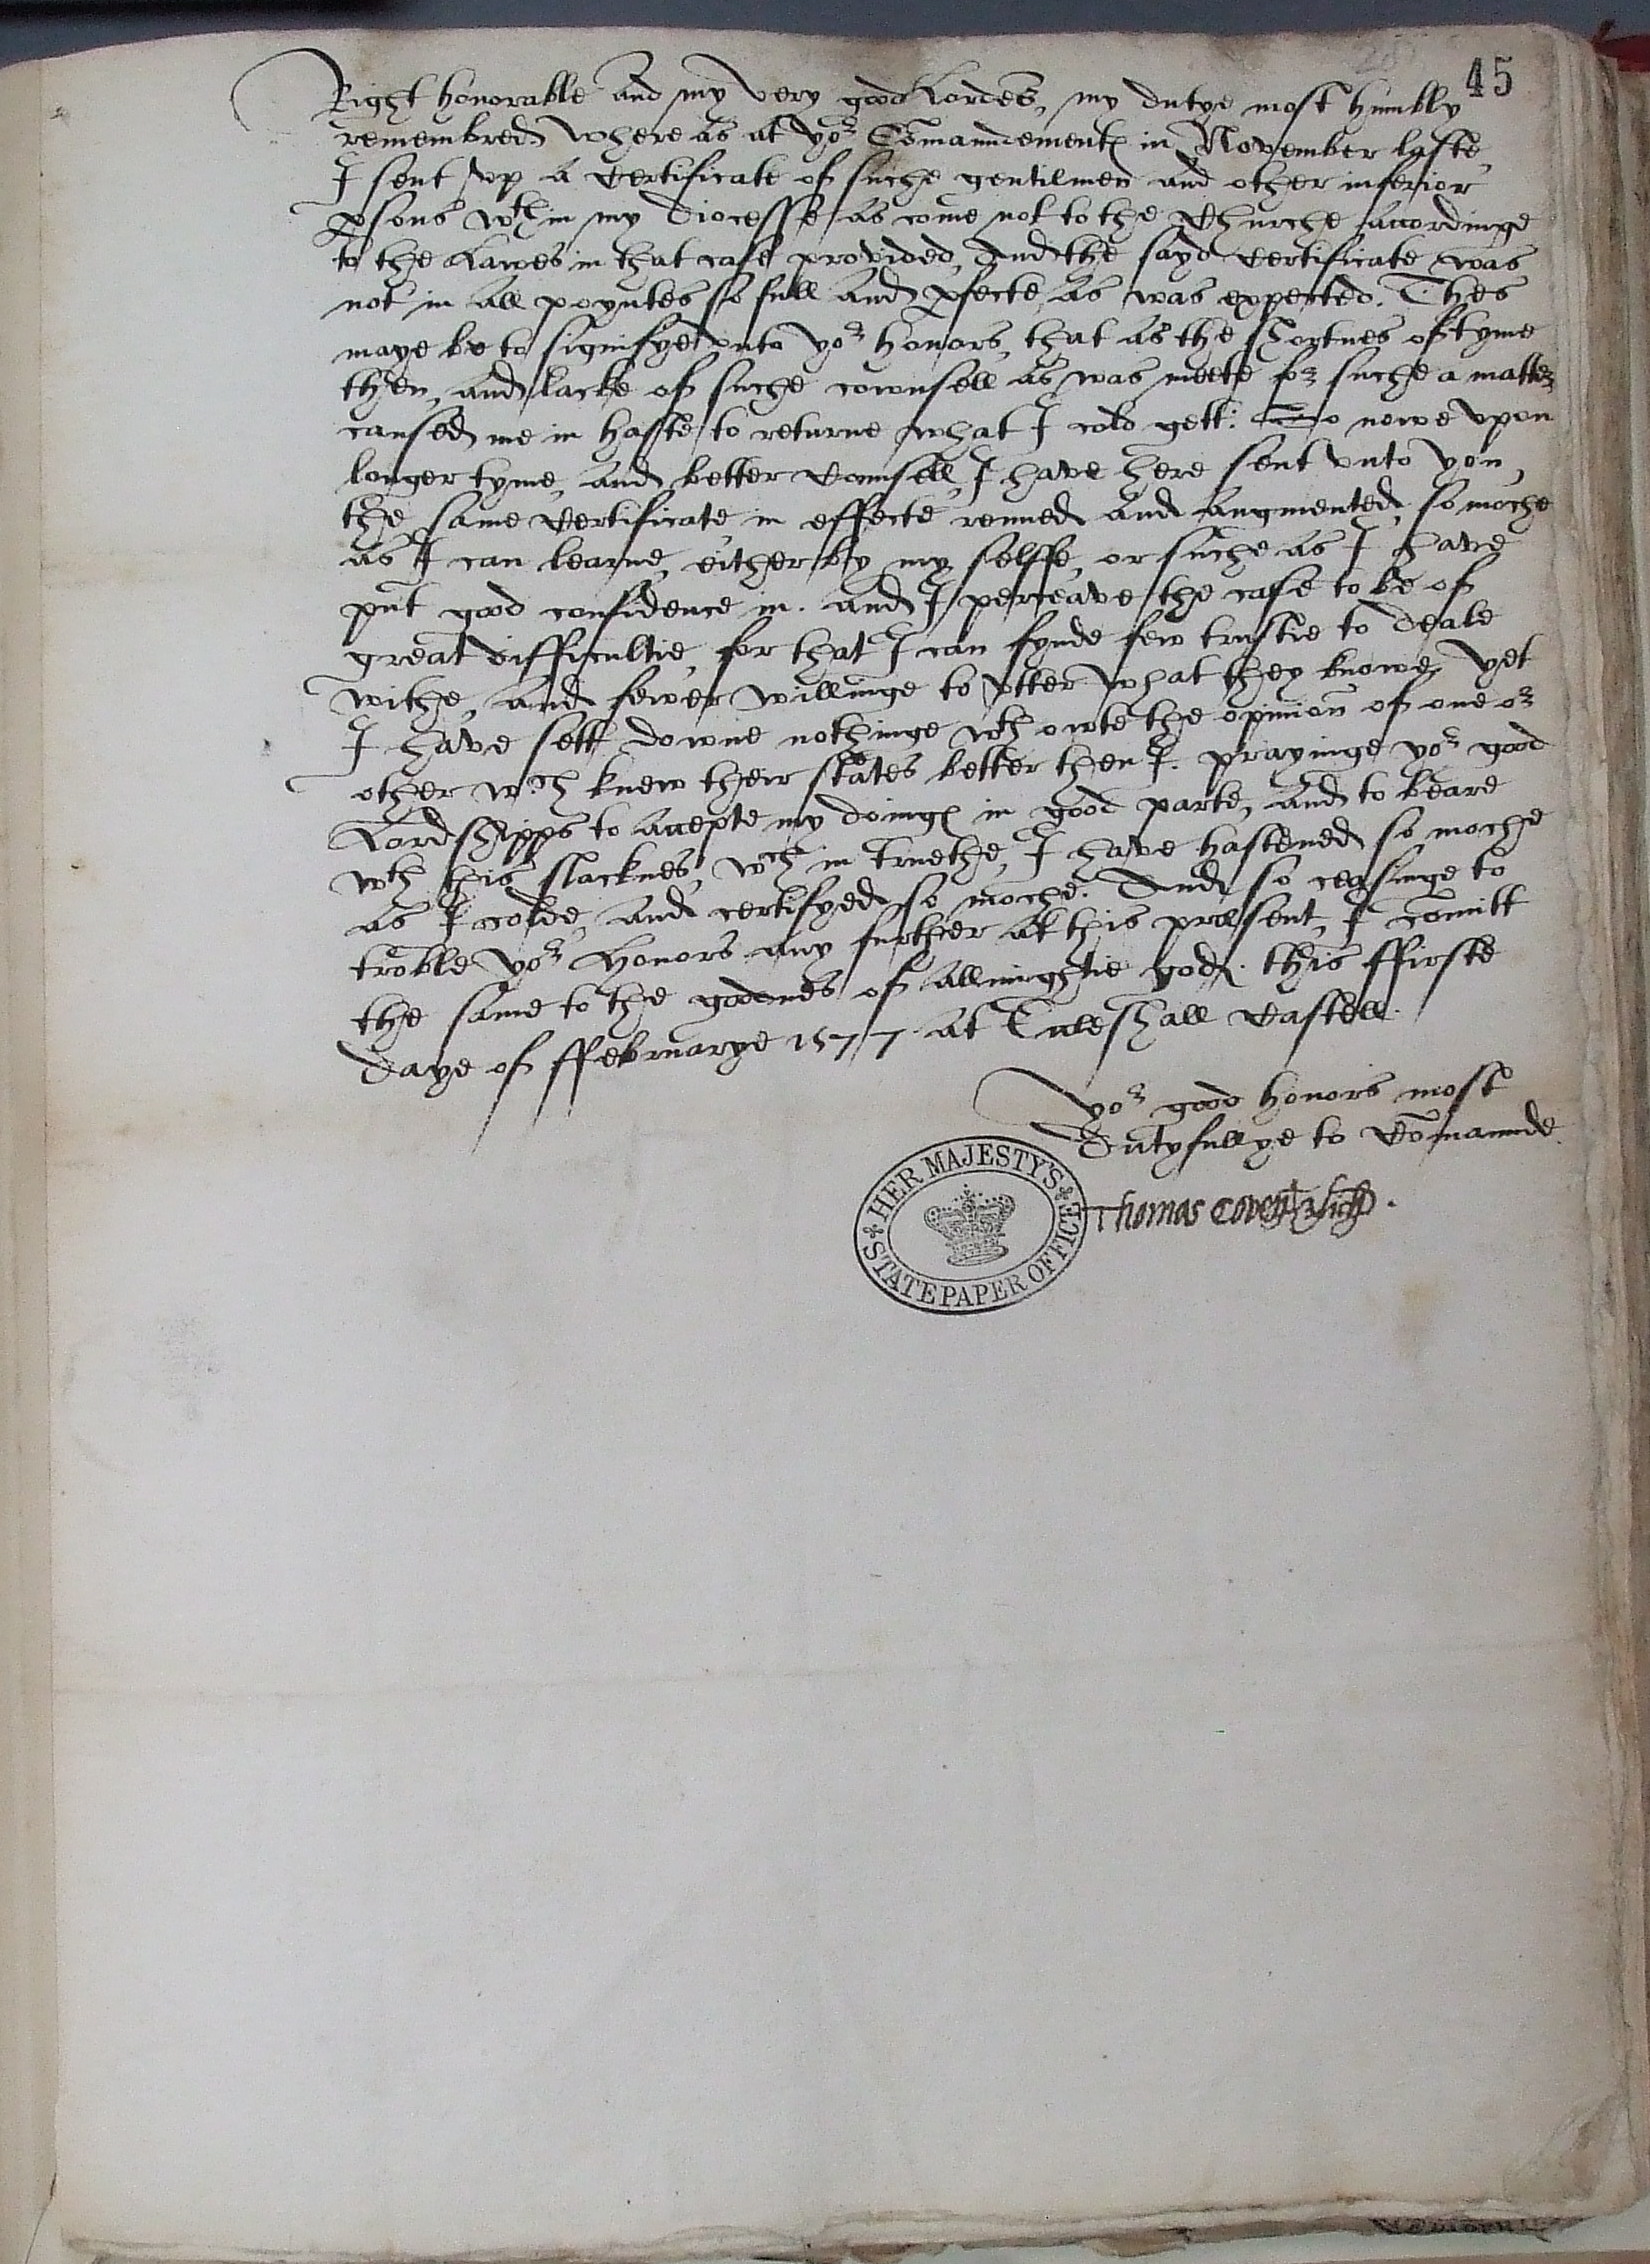 45
Right honorable and my very good Lordes, my dutye most humbly
remembred. Where as at yor Comaundementes in November laste,
I sent up a Certificate of suche gentilmen and other inferior
psons wth in my Diocesse as come not to the Churche accordinge
to the Lawes in that case provided, And the sayd Certificate was
not in all poyntes so full and pfecte as was expected. Thes
maye be to signifye unto yor honors, that as the shortnes of tyme
then, and lacke of suche cownsell as was meete for suche a matter
caused me in haste to returne what I cold gett: So nowe upon
longer tyme, and better Counsell, I have here sent unto you,
the same Certificate in effecte renued and augmented, so moche
as I can learne, either by my selffe, or suche as I have
put good confidence in. and I perceave the case to be of
great difficultie, for that I can fynde few trustie to deale
withe, and fewer willinge to utter what they knowe, yet
I have sett downe nothinge wth owte the opinion of one or
other wch knew their states better then I. prayinge yor good
Lordshipps to accepte my doinges in good parte, and to beare
wth this slacknes, wch in truethe, I have hastened so moche
as I colde, and certifyed so moche. And so ceasinge to
troble yor Honors any further at this præsent, I comitt
the same to the goodnes of allmightie god. this ffirste
daye of ffebruarye 1577 at Ecleshall Castell.
yor good honors most
Dutyfullye to Comaunde.
Thomas Coven: & Lich.
HER MAJESTY'S
STATE PAPER OFFICE